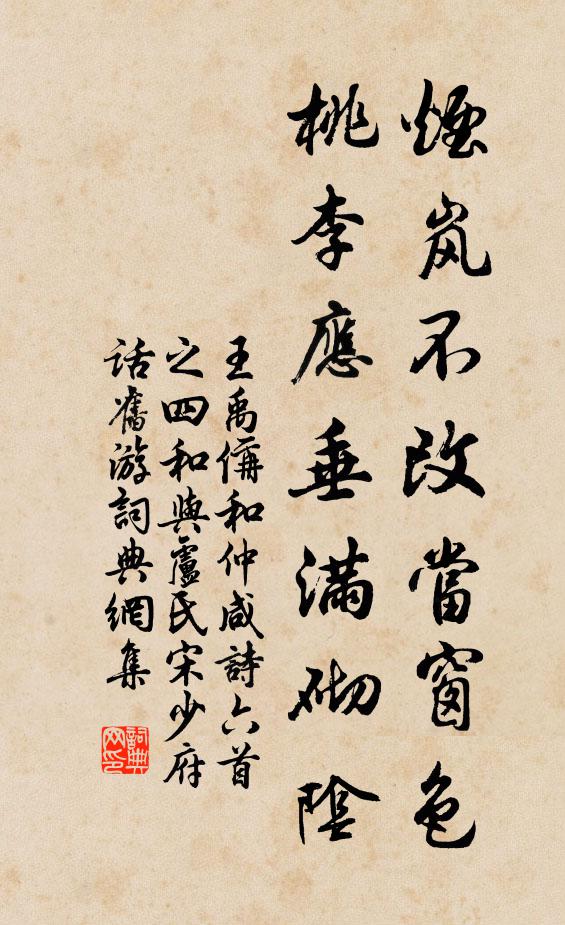 煙嵐不改當窗色
桃李應垂滿砌陰
王禹偁和仲咸詩六首
之四和與盧氏宋少府
話舊游詞典網集
詞典
网印